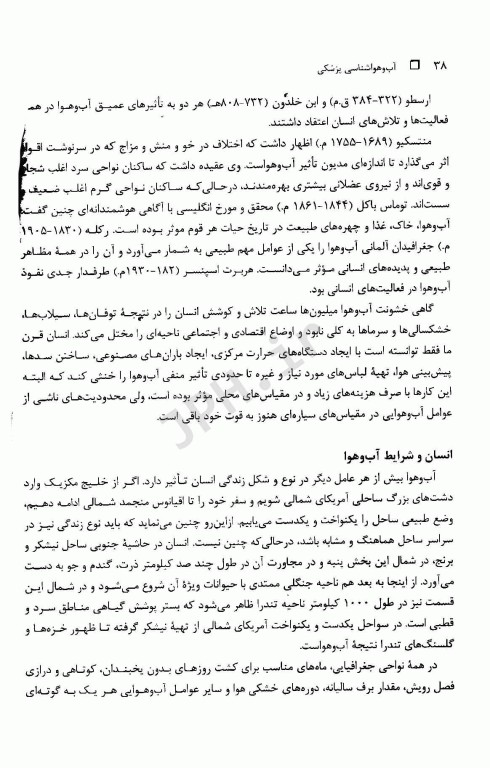 ۳۸ آب‌وهواشناسی پزشکی
ارسطو (۳۲۲-۳۸۴ ق.م) و ابن خلدون (۷۳۲-۸۰۸هـ) هر دو به تأثیرهای عمیق آب‌وهوا در همـ
فعالیت‌ها و تلاش‌های انسان اعتقاد داشتند.
منتسکیو (۱۶۸۹-۱۷۵۵ م.) اظهار داشت که اختلاف در خو و منش و مزاج که در سرنوشت اقوام
اثر می‌گذارد تا اندازه‌ای مدیون تأثیر آب‌وهواست. وی عقیده داشت که ساکنان نواحی سرد اغلب شجا
و قوی‌اند و از نیروی عضلانی بیشتری بهره‌مندند، درحالی‌که ساکنان نواحی گرم اغلب ضعیف و
سست‌اند. توماس باکل (۱۸۴۴-۱۸۶۱ م.) محقق و مورخ انگلیسی با آگاهی هوشمندانه‌ای چنین گفت:
آب‌وهوا، خاک، غذا و چهره‌های طبیعت در تاریخ حیات هر قوم موثر بوده است. رکله (۱۸۳۰-۱۹۰۵
م.) جغرافیدان آلمانی آب‌وهوا را یکی از عوامل مهم طبیعی به شمار می‌آورد و آن را در همۀ مظاهر
طبیعی و پدیده‌های انسانی مؤثر می‌دانست. هربرت اسپنسر (۱۸۲-۱۹۳۰م.) طرفدار جدی نفوذ
آب‌وهوا در فعالیت‌های انسانی بود.
گاهی خشونت آب‌وهوا میلیون‌ها ساعت تلاش و کوشش انسان را در نتیجۀ توفان‌ها، سیلاب‌ها،
خشکسالی‌ها و سرماها به کلی نابود و اوضاع اقتصادی و اجتماعی ناحیه‌ای را مختل می‌کند. انسان قرن
ما فقط توانسته است با ایجاد دستگاه‌های حرارت مرکزی، ایجاد باران‌های مصنوعی، ساختن سدها،
پیش‌بینی هوا، تهیۀ لباس‌های مورد نیاز و غیره تا حدودی تأثیر منفی آب‌وهوا را خنثی کند که البته
این کارها با صرف هزینه‌های زیاد و در مقیاس‌های محلی مؤثر بوده است، ولی محدودیت‌های ناشی از
عوامل آب‌وهوایی در مقیاس‌های سیاره‌ای هنوز به قوت خود باقی است.
انسان و شرایط آب‌وهوا
آب‌وهوا بیش از هر عامل دیگر در نوع و شکل زندگی انسان تأثیر دارد. اگر از خلیج مکزیک وارد
دشت‌های بزرگ ساحلی آمریکای شمالی شویم و سفر خود را تا اقیانوس منجمد شمالی ادامه دهیم،
وضع طبیعی ساحل را یکنواخت و یکدست می‌یابیم. ازاین‌رو چنین می‌نماید که باید نوع زندگی نیز در
سراسر ساحل هماهنگ و مشابه باشد، درحالی‌که چنین نیست. انسان در حاشیۀ جنوبی ساحل نیشکر و
برنج، در شمال این بخش پنبه و در مجاورت آن در طول چند صد کیلومتر ذرت، گندم و جو به دست
می‌آورد. از اینجا به بعد هم ناحیه جنگلی ممتدی با حیوانات ویژۀ آن شروع می‌شود و در شمال این
قسمت نیز در طول ۱۰۰۰ کیلومتر ناحیه تندرا ظاهر می‌شود که بستر پوشش گیاهی مناطق سرد و
قطبی است. در سواحل یکدست و یکنواخت آمریکای شمالی از تهیۀ نیشکر گرفته تا ظهور خزه‌ها و
گلسنگ‌های تندرا نتیجۀ آب‌وهواست.
در همۀ نواحی جغرافیایی، ماه‌های مناسب برای کشت روزهای بدون یخبندان، کوتاهی و درازی
فصل رویش، مقدار برف سالیانه، دوره‌های خشکی هوا و سایر عوامل آب‌وهوایی هر یک به گونه‌ای